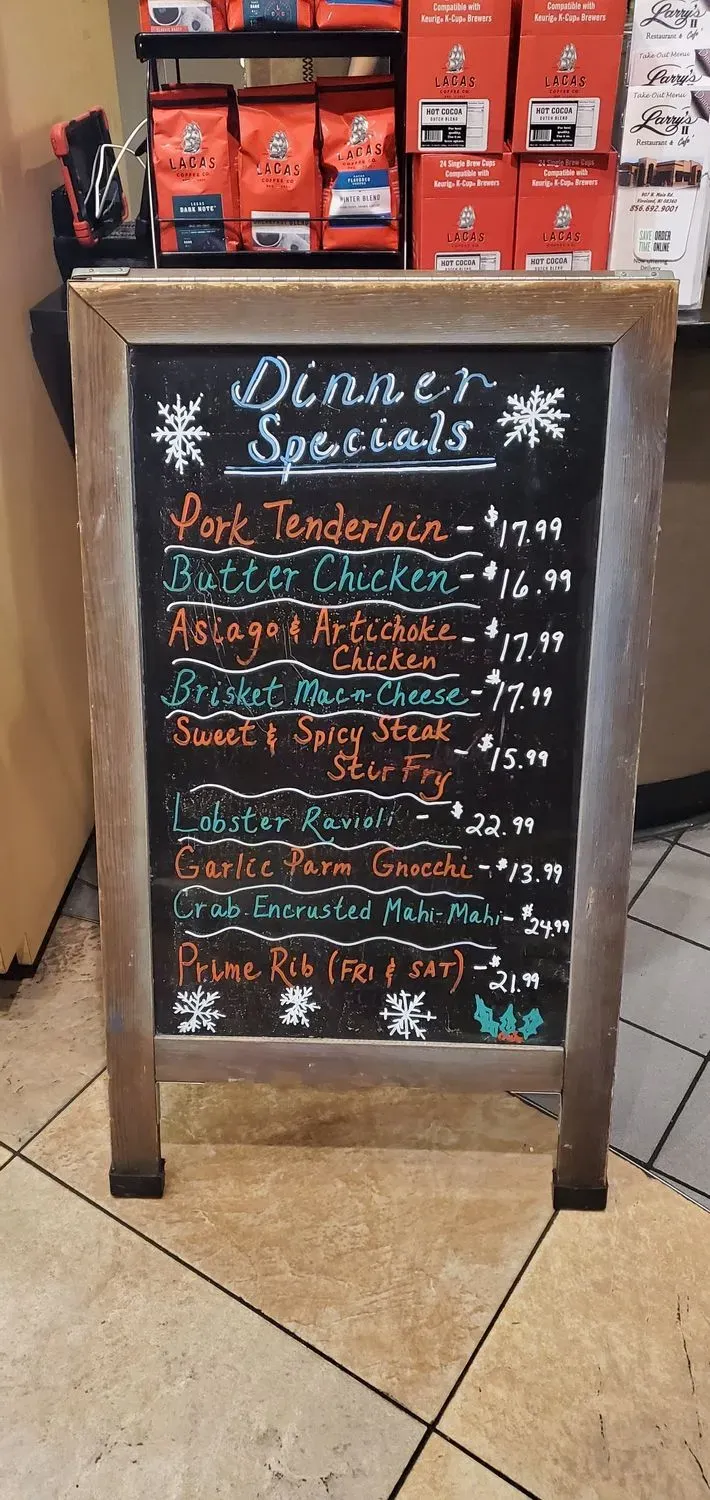 Compatible with
Keurig® K-Cup® Brewers
Compatible with
Keurig® K-Cup® Brewers
Larry's II
Restaurant & Cafe
Take Out Menu
Larry's
Take Out Menu
Larry's II
Restaurant & Cafe
907 N. Main Rd.
Vineland, NJ 08360
856.692.9001
SAVE TIME
ORDER ONLINE
Now Offering
Delivery
LACAS
COFFEE CO.
DARK NOTE
LACAS
COFFEE CO.
BREAKFAST BLEND
LACAS
COFFEE CO.
FLAVORED
WINTER BLEND
LACAS
COFFEE CO.
HOT COCOA
DUTCH BLEND
LACAS
COFFEE CO.
HOT COCOA
DUTCH BLEND
24 Single Brew Cups
Compatible with
Keurig® K-Cup® Brewers
LACAS
COFFEE CO.
HOT COCOA
24 Single Brew Cups
Compatible with
Keurig® K-Cup® Brewers
LACAS
COFFEE CO.
HOT COCOA
Dinner
Specials
Pork Tenderloin - $17.99
Butter Chicken - $16.99
Asiago & Artichoke - $17.99
Chicken
Brisket Mac-n-Cheese - $17.99
Sweet & Spicy Steak
Stir Fry - $15.99
Lobster Ravioli - $22.99
Garlic Parm Gnocchi - $13.99
Crab Encrusted Mahi-Mahi - $24.99
Prime Rib (FRI & SAT) - $21.99